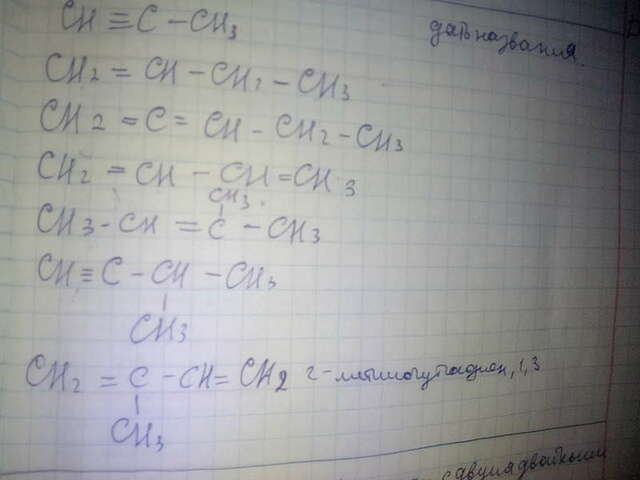 CH ≡ C – CH3
дать названия.
CH2 = CH – CH2 – CH3
CH2 = C = CH – CH2 – CH3
CH2 = CH – CH = CH3
CH3
CH3 – CH = C – CH3
CH ≡ C – CH – CH3
CH3
CH2 = C – CH = CH2 2-метилбутадиен, 1, 3
CH3
с двумя двойными